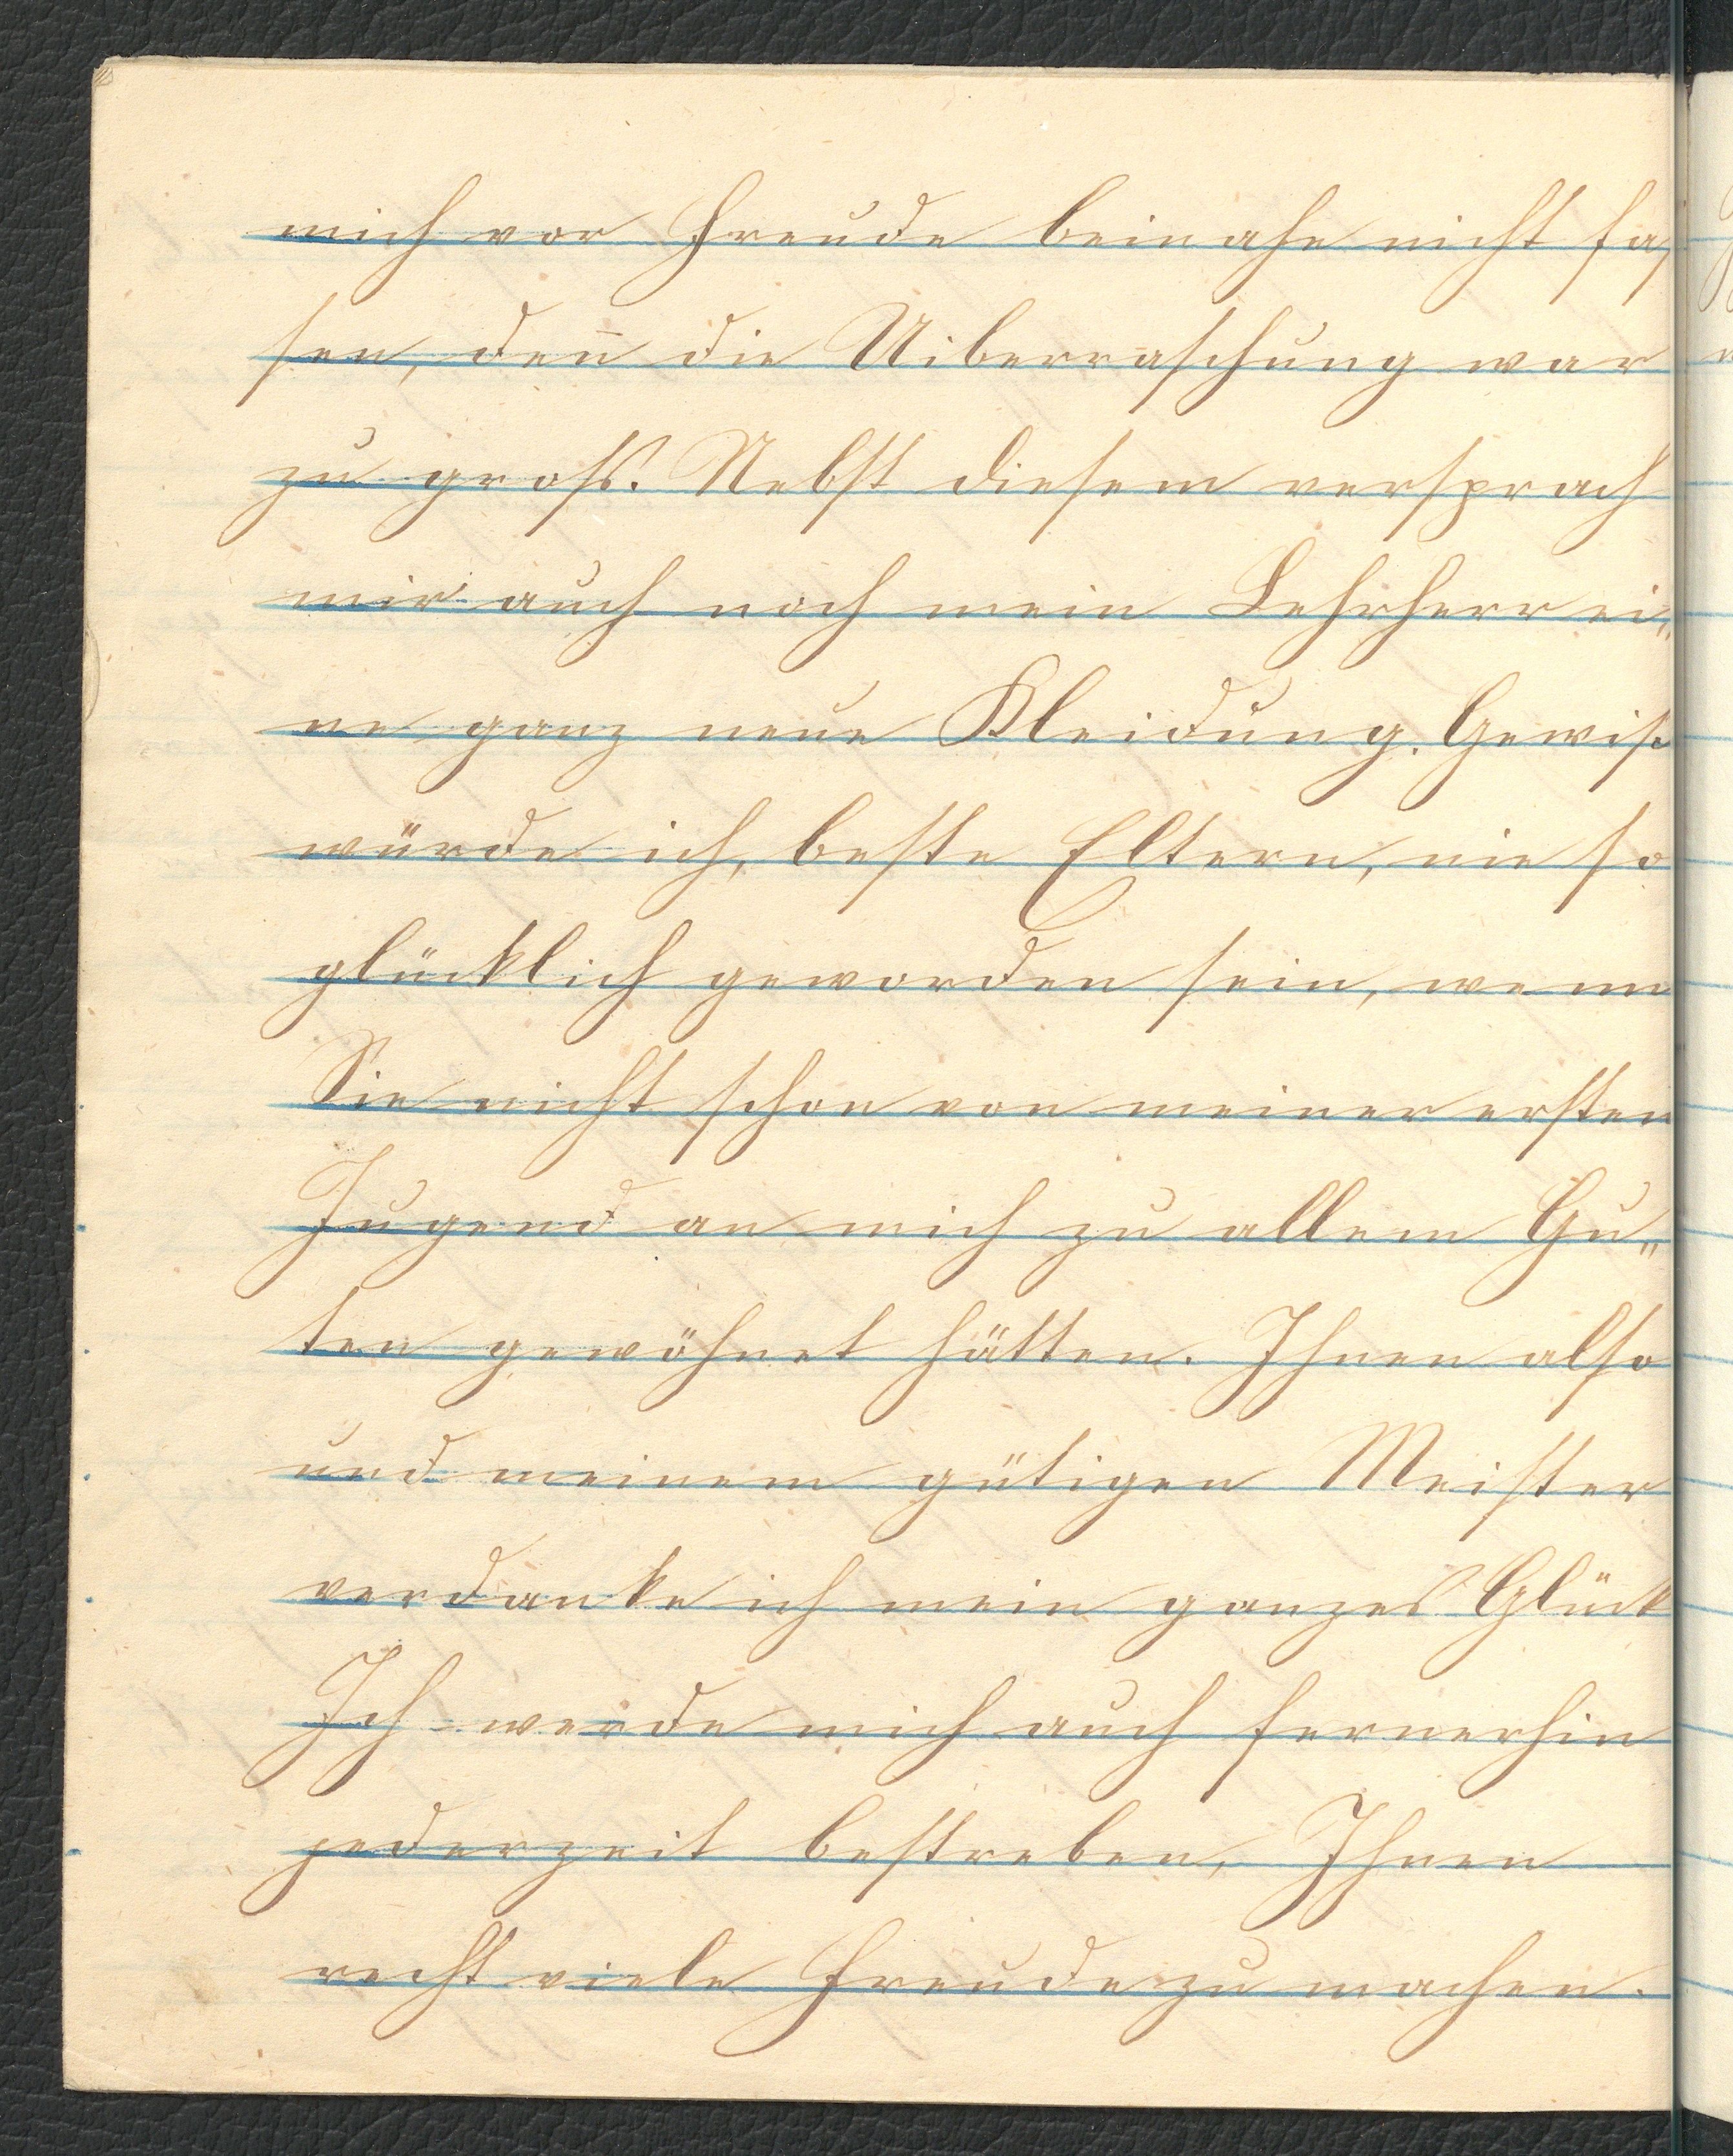 mich vor Freude beinahe nicht faſ
ſen, den̄ die Uiberraſchung war
zu groſs. Nebſt dieſem verſprach
mir auch noch mein Lehrherr ei„
ne ganz neue Kleidung. Gewiß
würde ich, beſte Eltern, nie ſo
glücklich geworden ſein, wenn
Sie nicht ſchon von meiner erſten
Jugend an mich zu allem Gu„
ten gewöhnet hätten. Ihnen alſo
und meinem gütigen Meiſter
verdanke ich mein ganzes Glück
Ich werde mich auch fernerhin
jederzeit beſtreben, Ihnen
recht viele Freude zu machen.